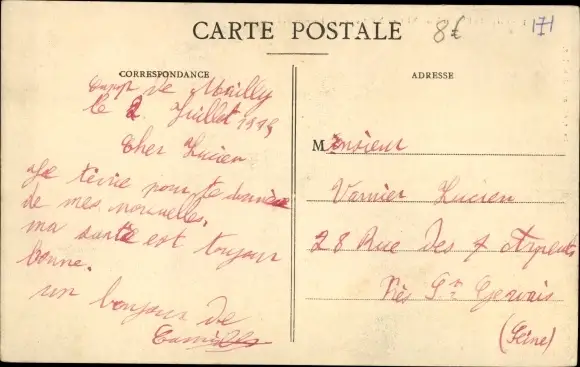 CARTE POSTALE
8€
171
CORRESPONDANCE
Camp de Mailly
le 2 Juillet
Cher Lucien
Je t'écrie pour te donner
de mes nouvelles.
ma santé est toujour
bonne.
un bonjour de
ADRESSE
Monsieur
Varnier Lucien
28 Rue Des 7 Arpents
Près St Gervais
(Seine)